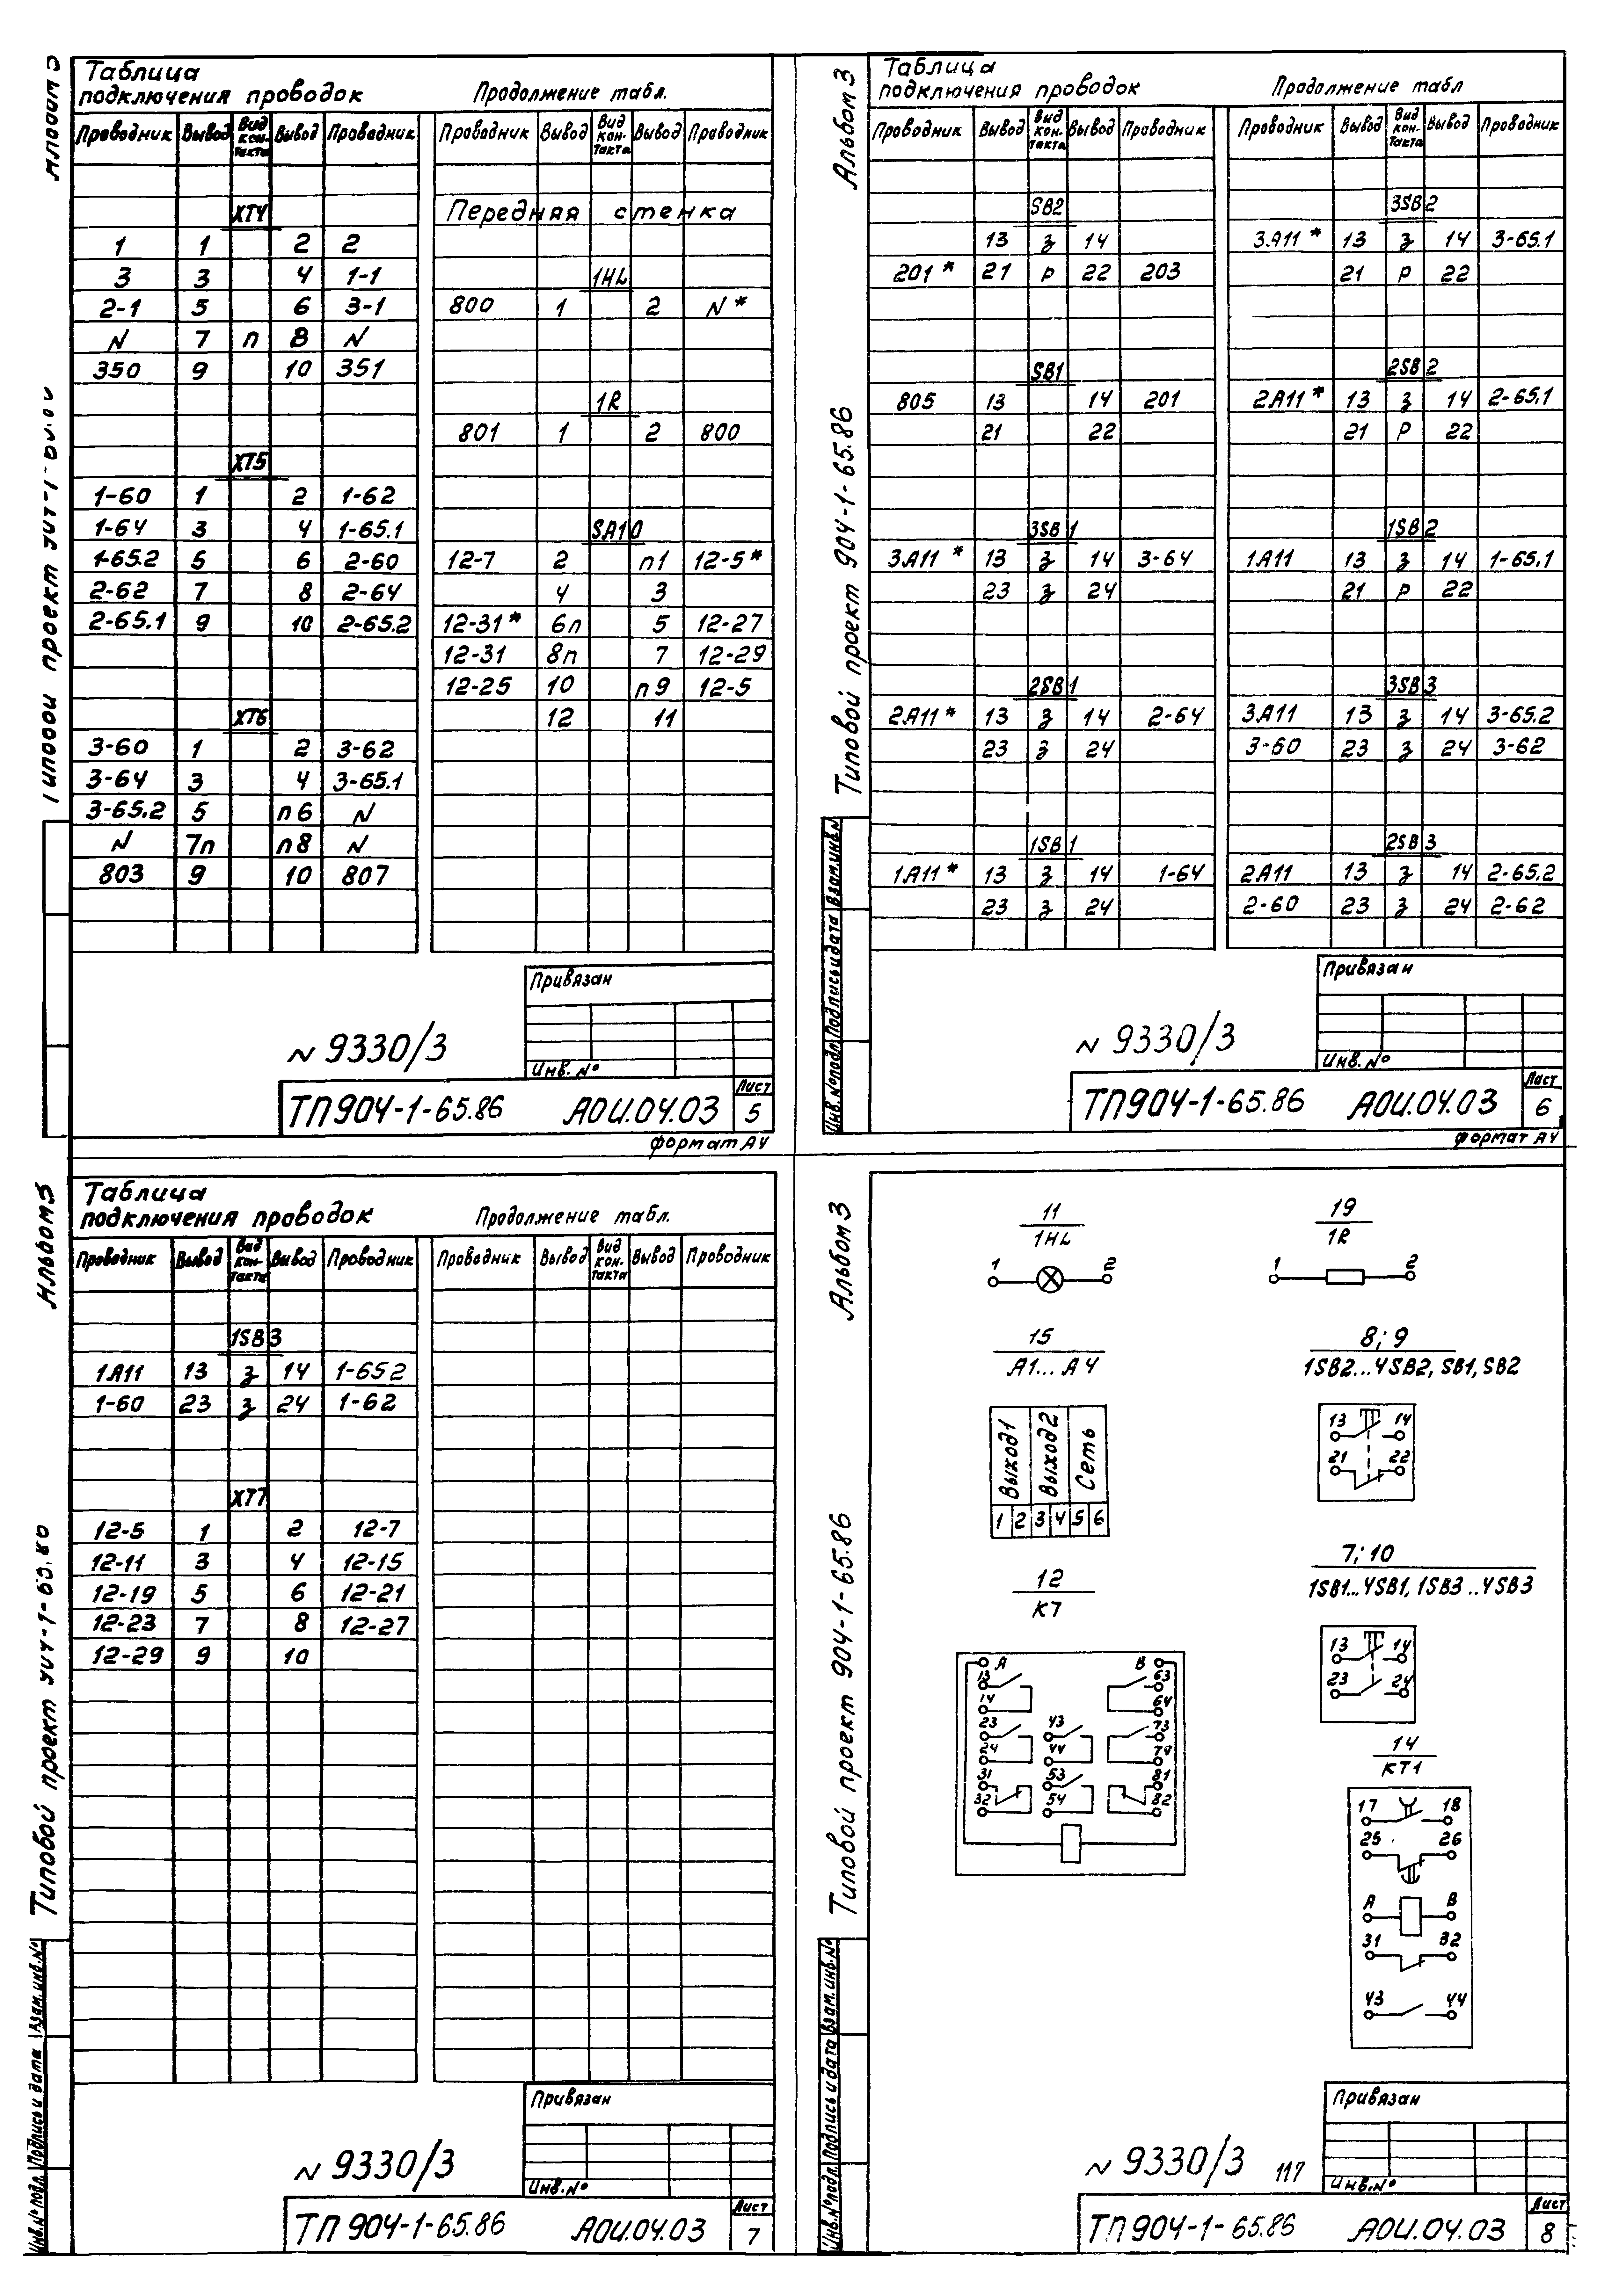 Таблица
подключения проводок
Продолжение табл.
Проводник Вывод Вид кон-такта Вывод Проводник
Проводник Вывод Вид кон-такта Вывод Проводник
XT4
1 1 2 2
3 3 4 1-1
2-1 5 6 3-1
N 7 п 8 N
350 9 10 351
XT5
1-60 1 2 1-62
1-64 3 4 1-65.1
1-65.2 5 6 2-60
2-62 7 8 2-64
2-65.1 9 10 2-65.2
XT6
3-60 1 2 3-62
3-64 3 4 3-65.1
3-65.2 5 п6 N
N 7п п8 N
803 9 10 807
Передняя стенка
1HL
800 1 2 N*
1R
801 1 2 800
SA10
12-7 2 п1 12-5*
4 3
12-31* 6п 5 12-27
12-31 8п 7 12-29
12-25 10 п9 12-5
12 11
Привязан
Инв.№
N 9330/3
ТП904-1-65.86 АОИ.04.03
Лист
5
формат А4
Альбом 3
Типовой проект 904-1-65.86
Взам.инв.№
Подпись и дата
Инв.№ подл.
Таблица
подключения проводок
Продолжение табл
Проводник Вывод Вид кон-такта Вывод Проводник
Проводник Вывод Вид кон-такта Вывод Проводник
SB2
13 з 14
201* 21 р 22 203
SB1
805 13 14 201
21 22
3SB1
3A11* 13 з 14 3-64
23 з 24
2SB1
2A11* 13 з 14 2-64
23 з 24
1SB1
1A11* 13 з 14 1-64
23 з 24
3SB2
3.A11* 13 з 14 3-65.1
21 р 22
2SB2
2A11* 13 з 14 2-65.1
21 р 22
1SB2
1A11 13 з 14 1-65.1
21 р 22
3SB3
3A11 13 з 14 3-65.2
3-60 23 з 24 3-62
2SB3
2A11 13 з 14 2-65.2
2-60 23 з 24 2-62
Привязан
Инв.№
N 9330/3
ТП904-1-65.86 АОИ.04.03
Лист
6
формат А4
Типовой проект
Взам.инв.№
Подпись и дата
Инв.№ подл.
Таблица
подключения проводок
Продолжение табл.
Проводник Вывод Вид кон-такта Вывод Проводник
Проводник Вывод Вид кон-такта Вывод Проводник
1SB3
1A11 13 з 14 1-652
1-60 23 з 24 1-62
XT7
12-5 1 2 12-7
12-11 3 4 12-15
12-19 5 6 12-21
12-23 7 8 12-27
12-29 9 10
Привязан
Инв.№
N 9330/3
ТП904-1-65.86 АОИ.04.03
Лист
7
Альбом 3
Типовой проект 904-1-65.86
Взам.инв.№
Подпись и дата
Инв.№ подл.
11
1HL
1 2
19
1R
1 2
15
A1...A4
Выход1
Выход2
Сеть
1 2 3 4 5 6
8; 9
1SB2...4SB2, SB1, SB2
13 14
21 22
12
K7
A B
13 63
14 64
23 43 73
24 44 74
31 53 81
32 54 82
7; 10
1SB1...4SB1, 1SB3..4SB3
13 14
23 24
14
KT1
17 18
25 26
A B
31 32
43 44
Привязан
Инв.№
N 9330/3 117
ТП904-1-65.86 АОИ.04.03
Лист
8